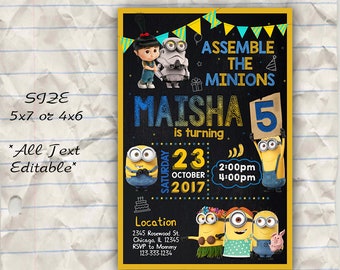 SIZE
5x7 or 4x6
*All Text
Editable*
ASSEMBLE
THE
MINIONS
MAISHA 5
is turning
SATURDAY
23
OCTOBER
2017
2:00pm
4:00pm
Location
12345 Rosewood St.
Chicago, IL 12345
RSVP to Mommy
123-123-1234